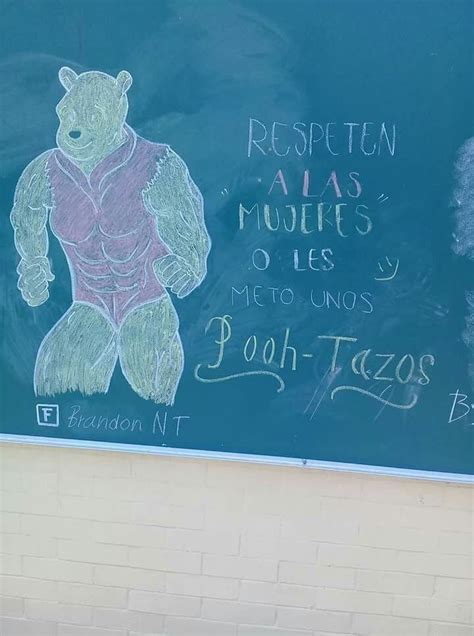 RESPETEN
"A LAS
MUJERES"
O LES
METO UNOS
Pooh-Tazos
F Brandon NT
B